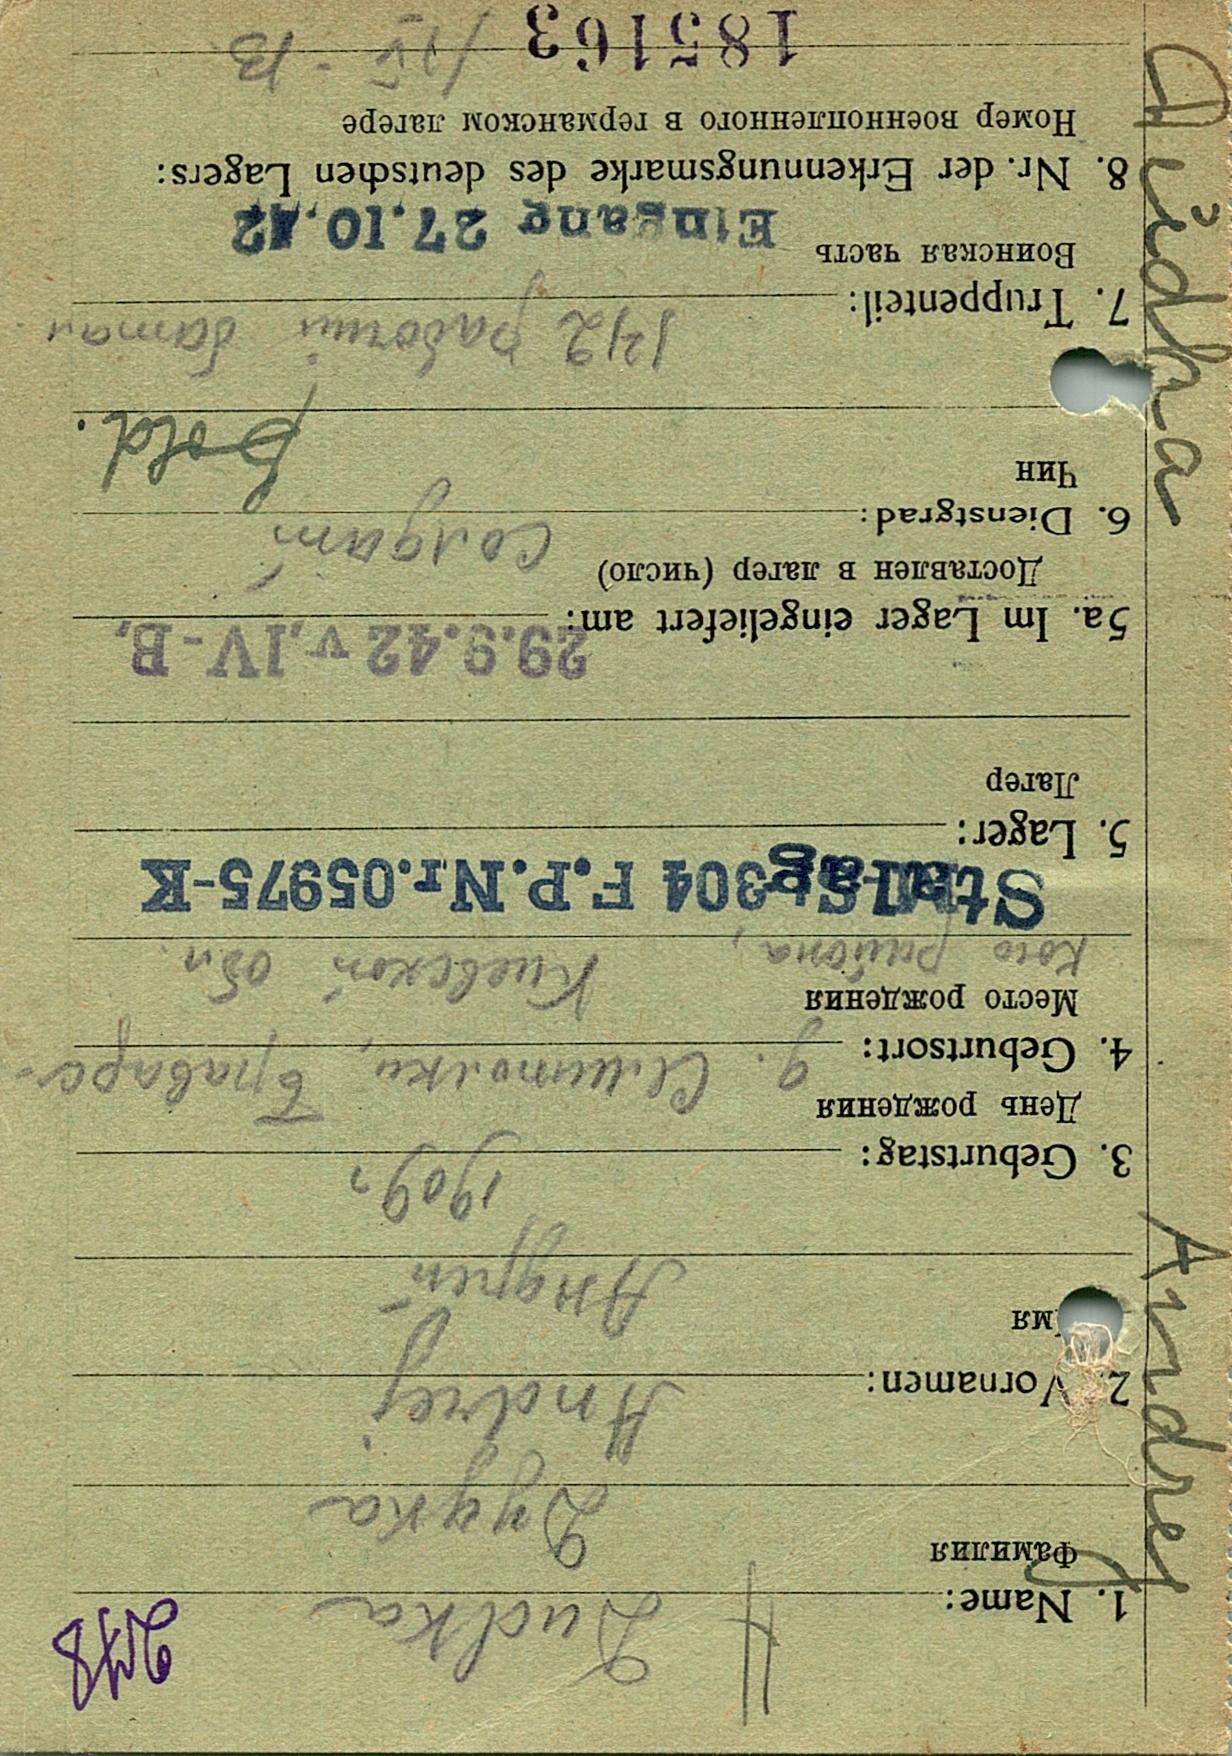 248
1. Name: Dudka
Фамилия Дудка
2. Vornamen: Andrej
мя Андрей
3. Geburtstag: 1909 г
День рождения
4. Geburtsort: д. Бравар-
Место рождения
кого района, Киевской обл.
Stalag 304 F.P.Nr.05975-K
5. Lager:
Лагер
29.9.42 v. IV-B,
5a. Im Lager eingeliefert am:
Доставлен в лагер (число)
6. Dienstgrad: Солдат
Чин Sold.
142 рабочий батал.
7. Truppenteil:
Воинская часть
Eingang 27.10.42
8. Nr. der Erkennungsmarke des deutschen Lagers:
Номер военнопленного в германском лагере
185163 IV-B.
Andrej